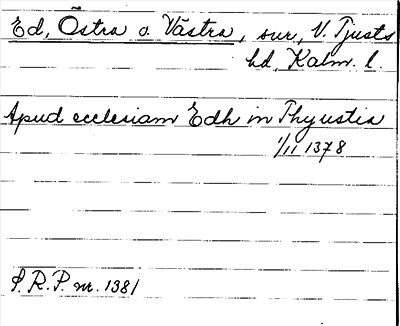 Ed, Östra o. Västra, sur, V. Tjusts
hd, Kalm. l.
Apud ecclesiam Edh in Thyustia
1/11 1378
S.R.P. nr. 1381